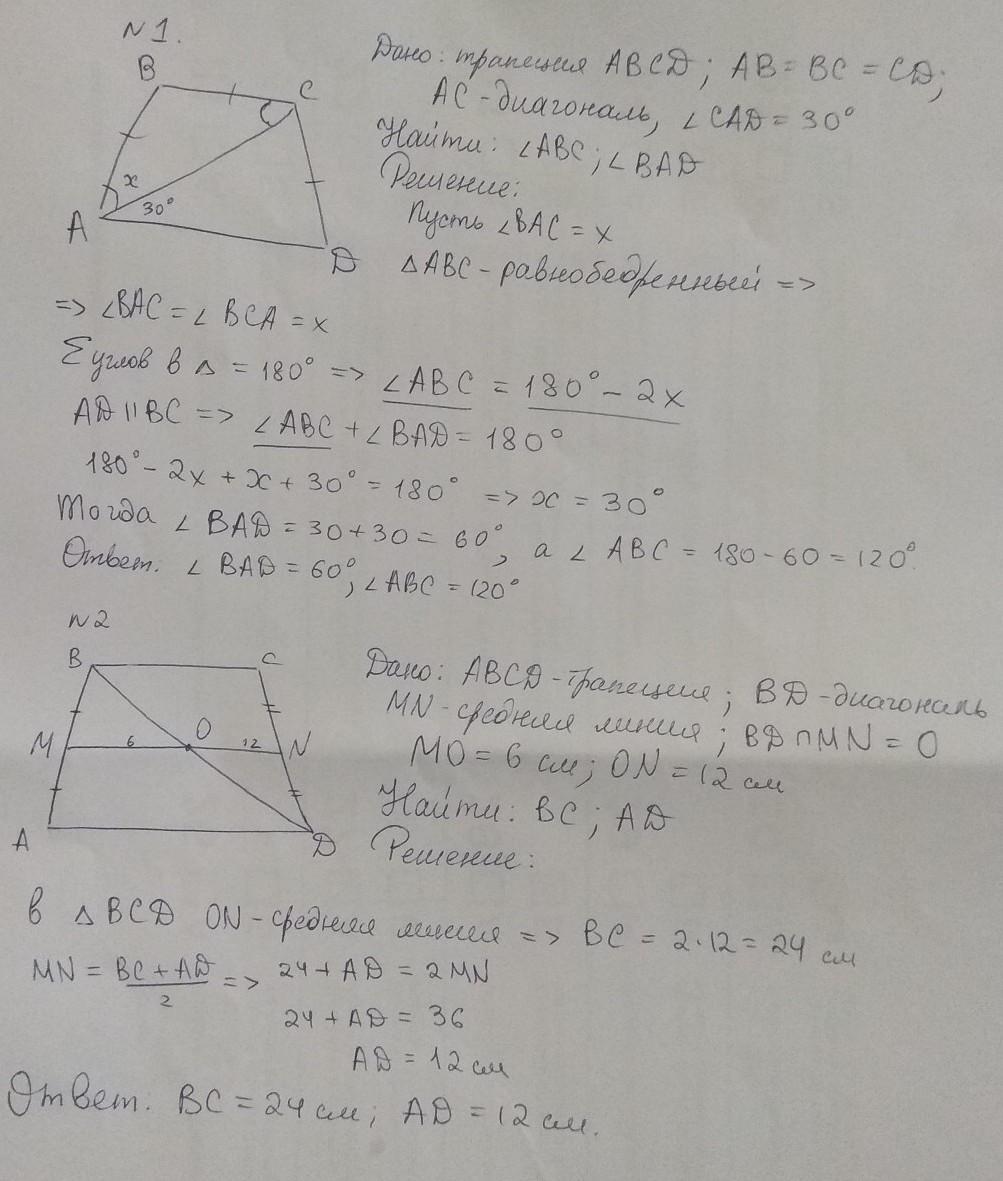 N1.
B
C
x
30°
A
D
Дано: трапеция ABCD; AB = BC = CD;
AC - диагональ, ∠CAD = 30°
Найти: ∠ABC; ∠BAD
Решение:
Пусть ∠BAC = x
△ABC - равнобедренный =>
=> ∠BAC = ∠BCA = x
Σ углов в △ = 180° => ∠ABC = 180° - 2x
AD || BC => ∠ABC + ∠BAD = 180°
180° - 2x + x + 30° = 180° => x = 30°
Тогда ∠BAD = 30 + 30 = 60°, а ∠ABC = 180 - 60 = 120°.
Ответ. ∠BAD = 60°, ∠ABC = 120°
N2
B
C
M
6
O
12
N
A
D
Дано: ABCD - трапеция; BD - диагональ
MN - средняя линия; BD ∩ MN = O
MO = 6 см; ON = 12 см
Найти: BC; AD
Решение:
В △BCD ON - средняя линия => BC = 2·12 = 24 см
MN = (BC + AD)/2 => 24 + AD = 2MN
24 + AD = 36
AD = 12 см
Ответ. BC = 24 см; AD = 12 см.